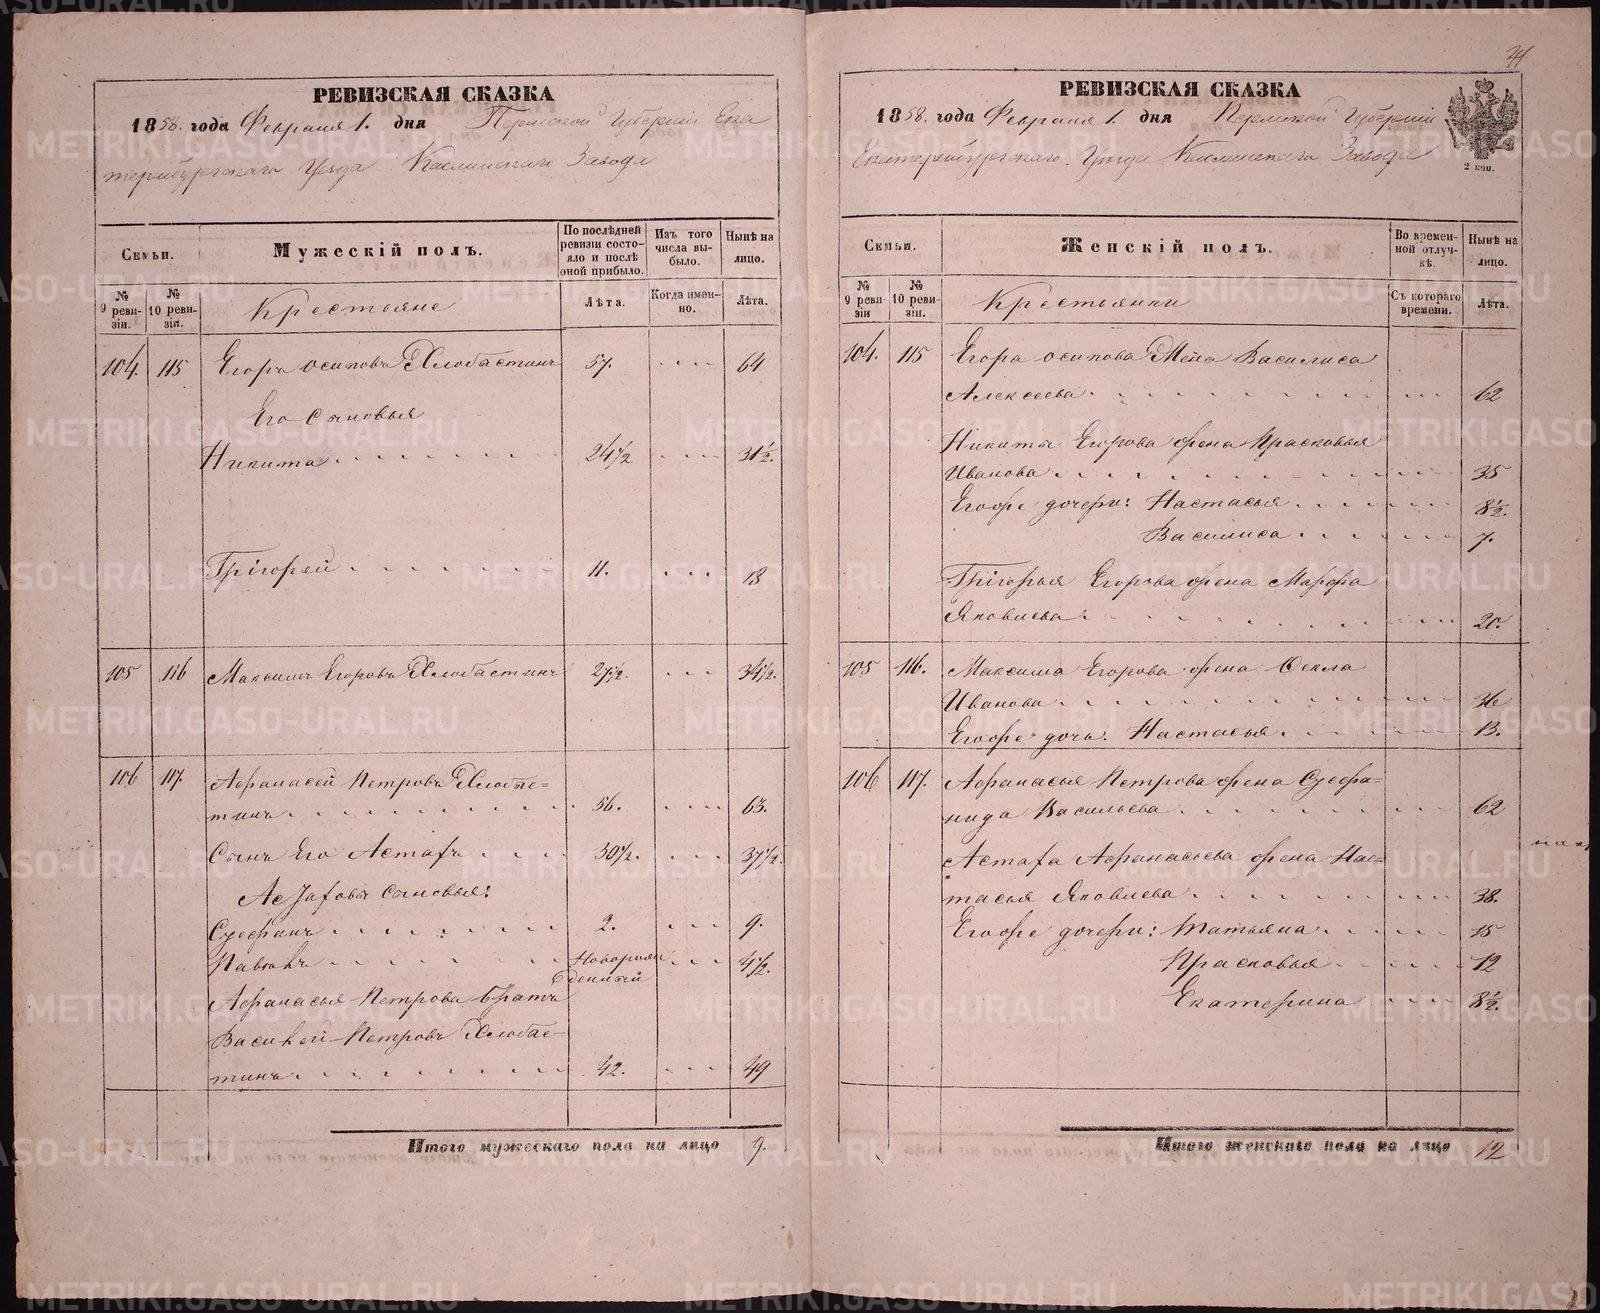 РЕВИЗСКАЯ СКАЗКА
1858. года Февраля 1. дня Пермской Губернiи Ека
теринбургскаго Уезда Каслинскаго Завода
Семьи.
Мужескiй полъ.
По послѣдней ревизiи состояло и послѣ оной прибыло.
Изъ того числа выбыло.
Нынѣ на лицо.
№ 9 ревизiи.
№ 10 ревизiи.
Крестьяне
Лѣта.
Когда именно.
Лѣта.
104. 115 Егоръ Осиповъ Хлобыстинъ 57. 64
Его Сыновья
Никита 24 1/2 31 1/2.
Григорей 11. 18
105 116 Максимъ Егоровъ Хлобыстинъ 27 1/2. 34 1/2.
106 117 Афанасей Петровъ Хлобыс=
тинъ 56. 63.
Сынъ Его Астафъ 30 1/2. 37 1/2.
Астафовы Сыновья:
2. 9.
Новорожденный 4 1/2.
Афанасья Петрова братъ
Василей Петровъ Хлобыс=
тинъ 42. 49
Итого мужескаго пола на лицо 9.
РЕВИЗСКАЯ СКАЗКА
1858. года Февраля 1. дня Пермской Губернiи
Екатеринбургскаго Уезда Каслинскаго Завода
2 коп.
Семьи.
Женскiй полъ.
Во временной отлучкѣ.
Нынѣ на лицо.
№ 9 ревизiи
№ 10 ревизiи.
Крестьянки
Съ котораго времени.
Лѣта.
104. 115 Егора Осипова Жена Василиса
Алексеева 62
Никиты Егорова жена Прасковья
Иванова 35
Егоже дочери: Настасья 8 1/2.
Василиса 7.
Григорья Егорова жена Марфа
Яковлева 20.
105 116. Максима Егорова жена Фекла
Иванова 36
Егоже дочь: Настасья 13.
106 117. Афанасья Петрова жена Суефа=
нида Васильева 62
Астафа Афанасьева жена Нас=
тасья Яковлева 38.
Егоже дочери: Татьяна 15
Прасковья 12
Екатерина 8 1/2.
Итого женскаго пола на лицо 12
METRIKI.GASO-URAL.RU